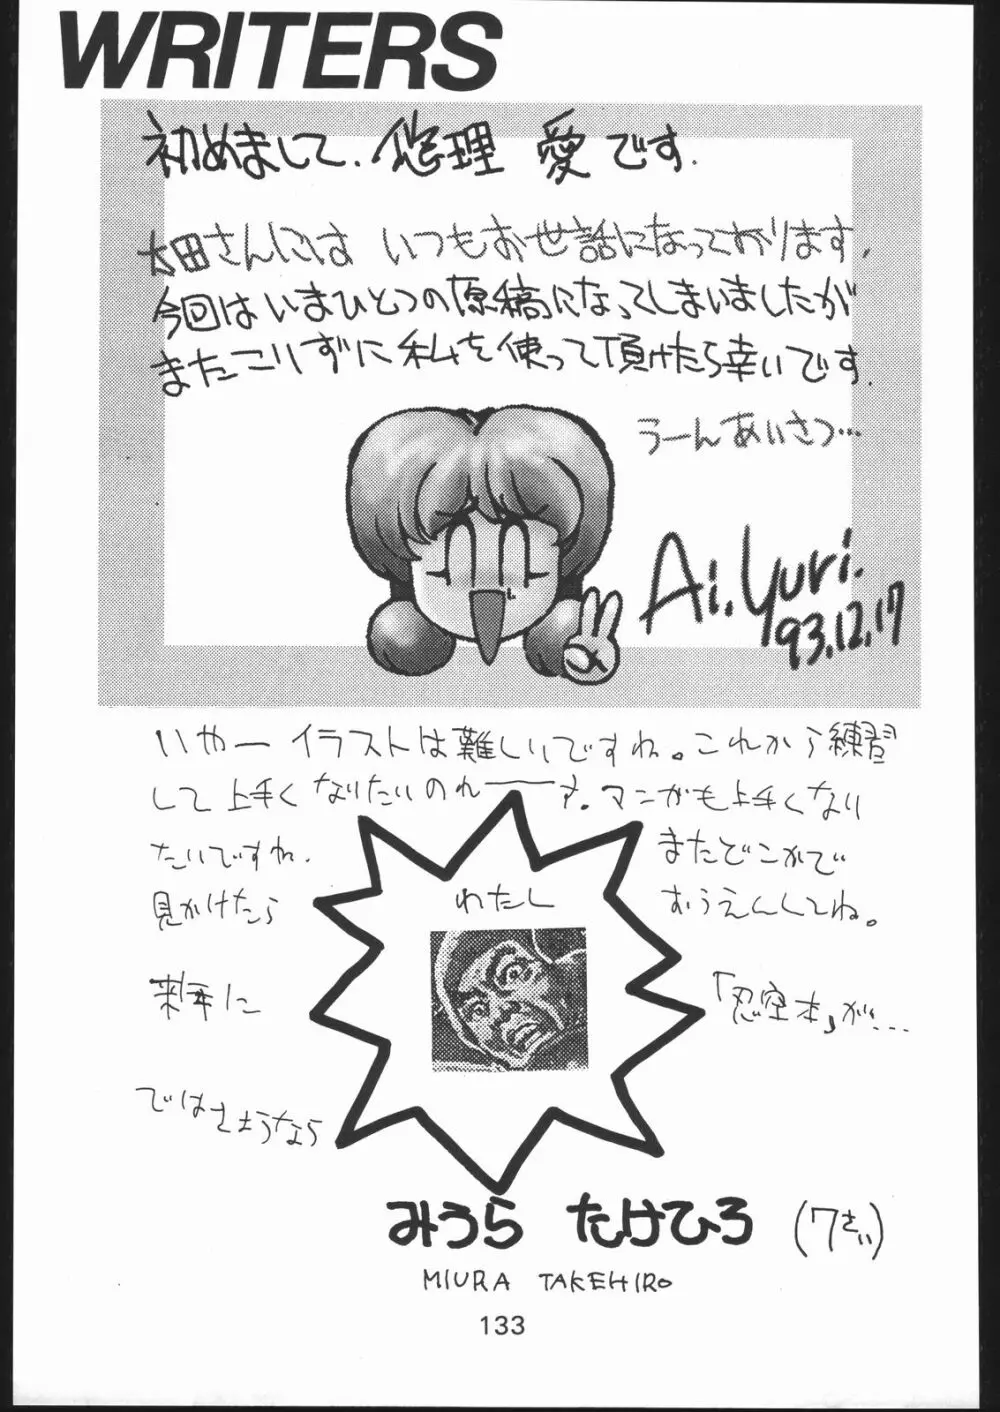 WRITERS
初めまして、悠理 愛です.
太田さんには いつもお世話になっております.
今回はいまひとつの原稿になってしまいましたが
またこりずに私を使って頂けたら幸いです.
うーんあいさつ…
Ai.Yuri.
93.12.17
いやー イラストは難しいですね。これから練習
して上手くなりたいのれーーす。マンガも上手くなり
たいですね. またどこかで
見かけたら おうえんしてね。
わたし
来年に 「忍空本」が…
ではさようなら
みうら たけひろ (7さい)
MIURA TAKEHIRO
133